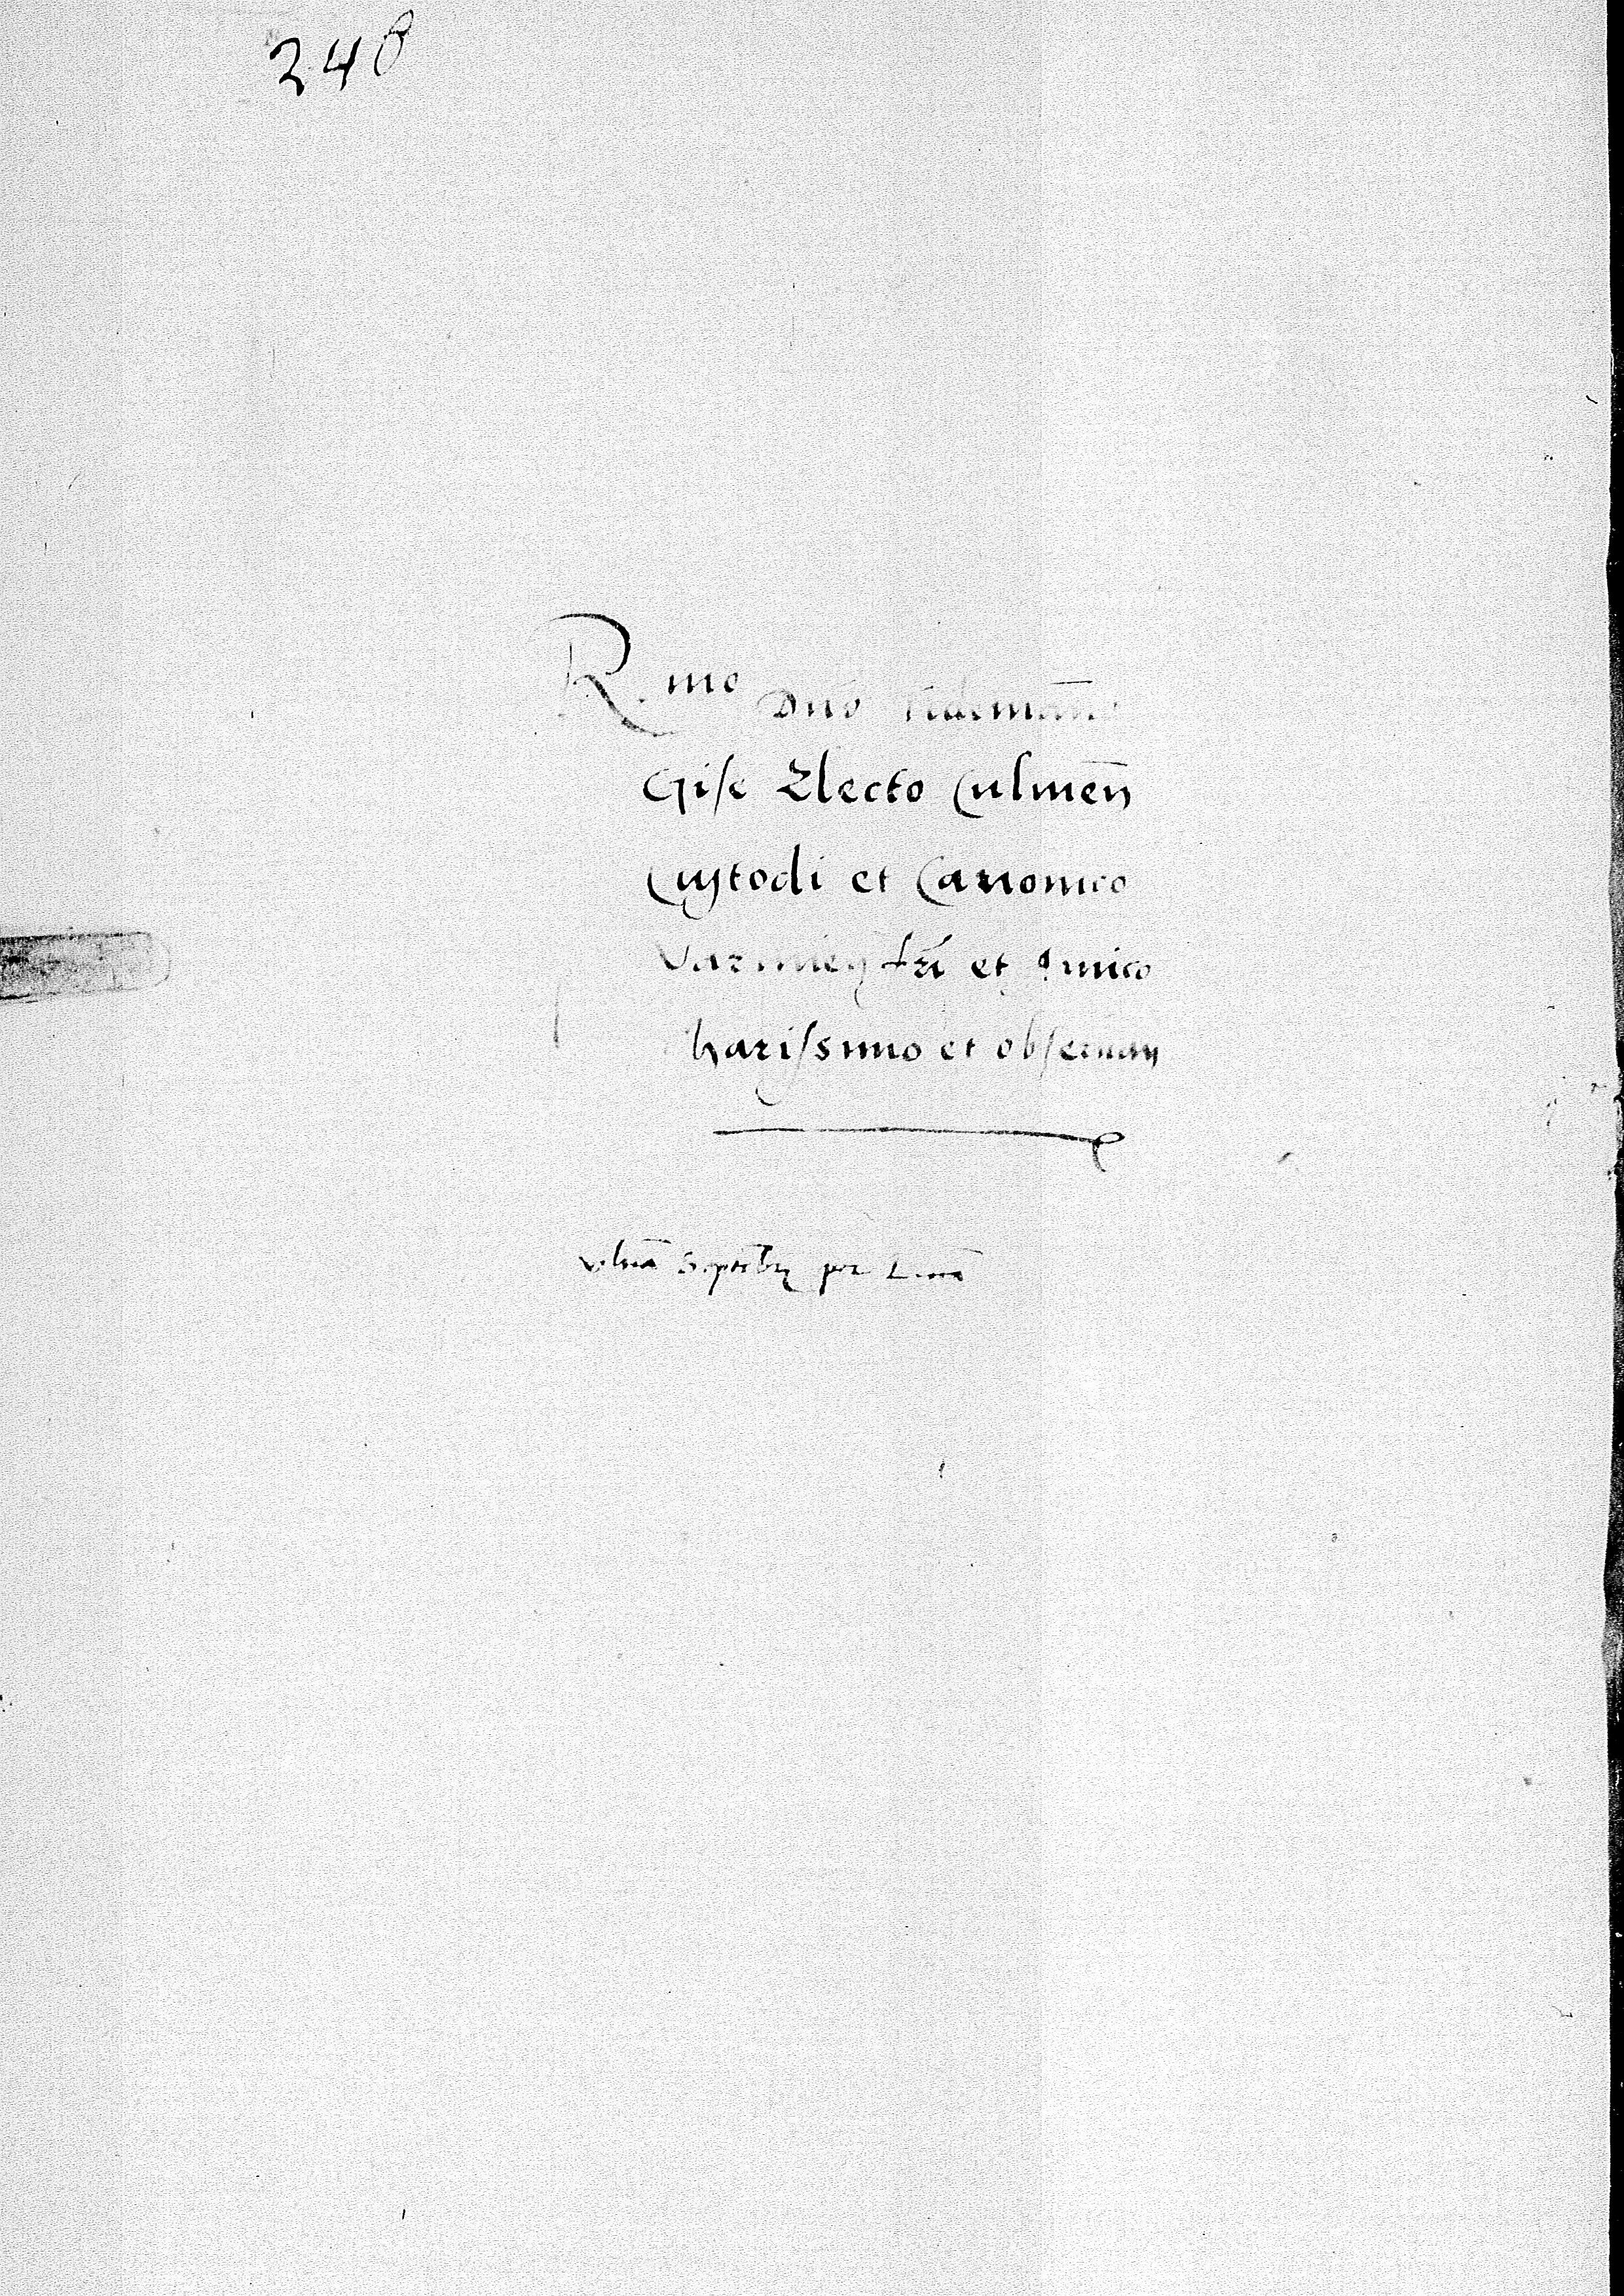 248
R.mo Dno Tidemanno
Gise Electo Culmen̄
Custodi et Canonico
Varmien̄ frī et Amico
harissimo et obseruan
vltiā Septēbr per